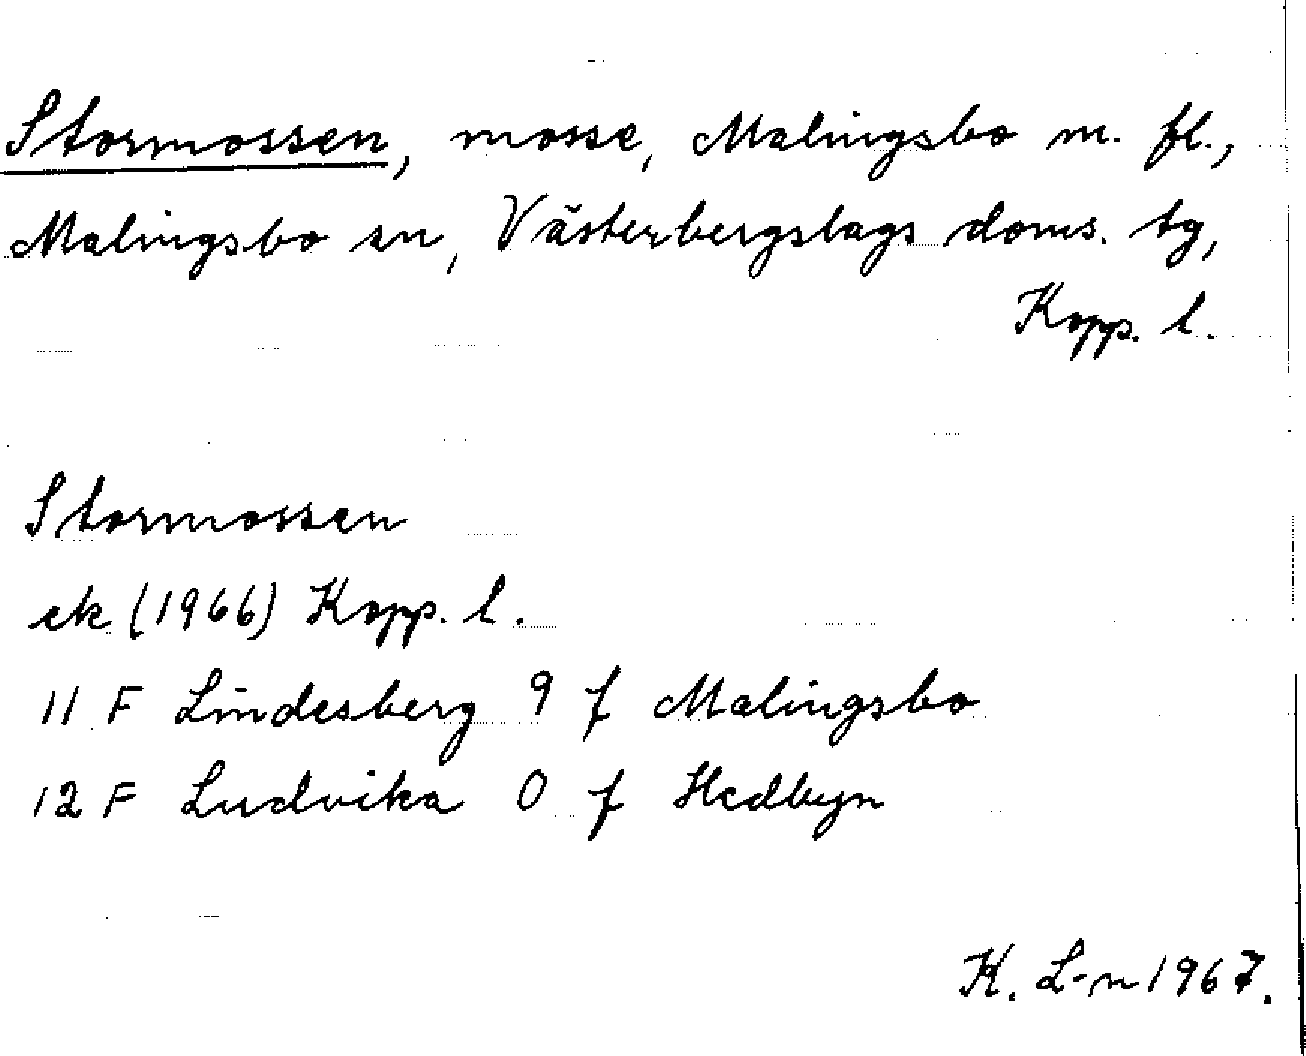 Stormossen, mosse, Malingsbo m. fl.,
Malingsbo sn, Västerbergslags doms. tg,
Kopp. l.
Stormossen
ek (1966) Kopp. l.
11 F Lindesberg 9 f Malingsbo
12 F Ludvika 0 f Hedbyn
K. L-n 1967.